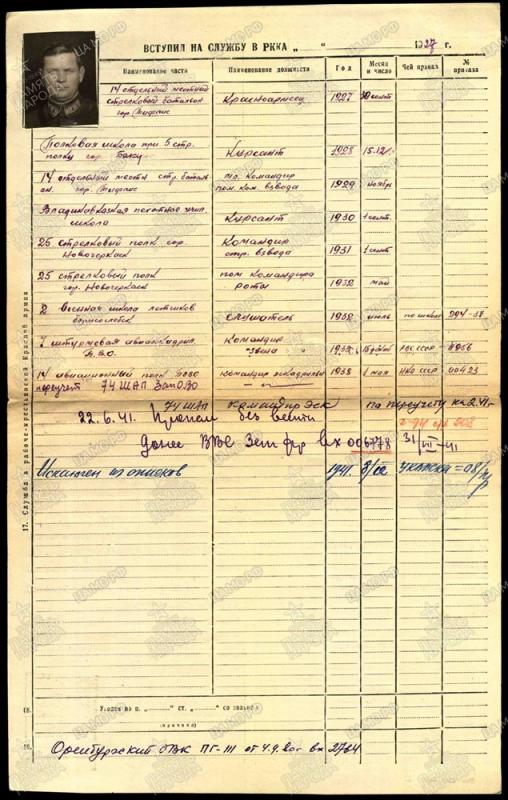 ВСТУПИЛ НА СЛУЖБУ В РККА „ “ 1927 г.
Наименование части Наименование должности Год Месяц и число Чей приказ № приказа
14 отдельный местный стрелковый батальон гор. Тифлис Красноармеец 1927 сент
Полковая школа при 5 стр. полку гор. Баку Курсант 1928 15.12
14 отдельный местн стр. батальон гор. Тифлис Командир пом. ком. взвода 1929 ноябрь
Владикавказская пехотное школа Курсант 1930 1 сент
25 стрелковый полк гор. Новочеркасск Командир стр. взвода 1931 1 сент
25 стрелковый полк гор. Новочеркасск пом командира роты 1932 май
2 военная школа летчиков Борисоглебск слушатель 1932 июль по школе
7 штурмовая авиаэскадрил. Командир звена
14 авиационный полк командир эскадрильи 1938 1 мая НКО СССР 00423
переучет 74 ШАП ЗапОВО
74 ШАП командир Эск по переучету на 2.41 г
22.6.41. Пропал без вести
донес ВВС Зап фр вх 006778 31/VII-41
Исключен из списков 1941.
17. Служба в рабоче-крестьянской Красной армии
18. Уволен по п. „ “ ст. „ “ со званием
(причина)
19. Оренбургский ОВК ПГ-III от 4.9. вх 2764
ЦАМО.РФ
ПАМЯТЬ НАРОДА